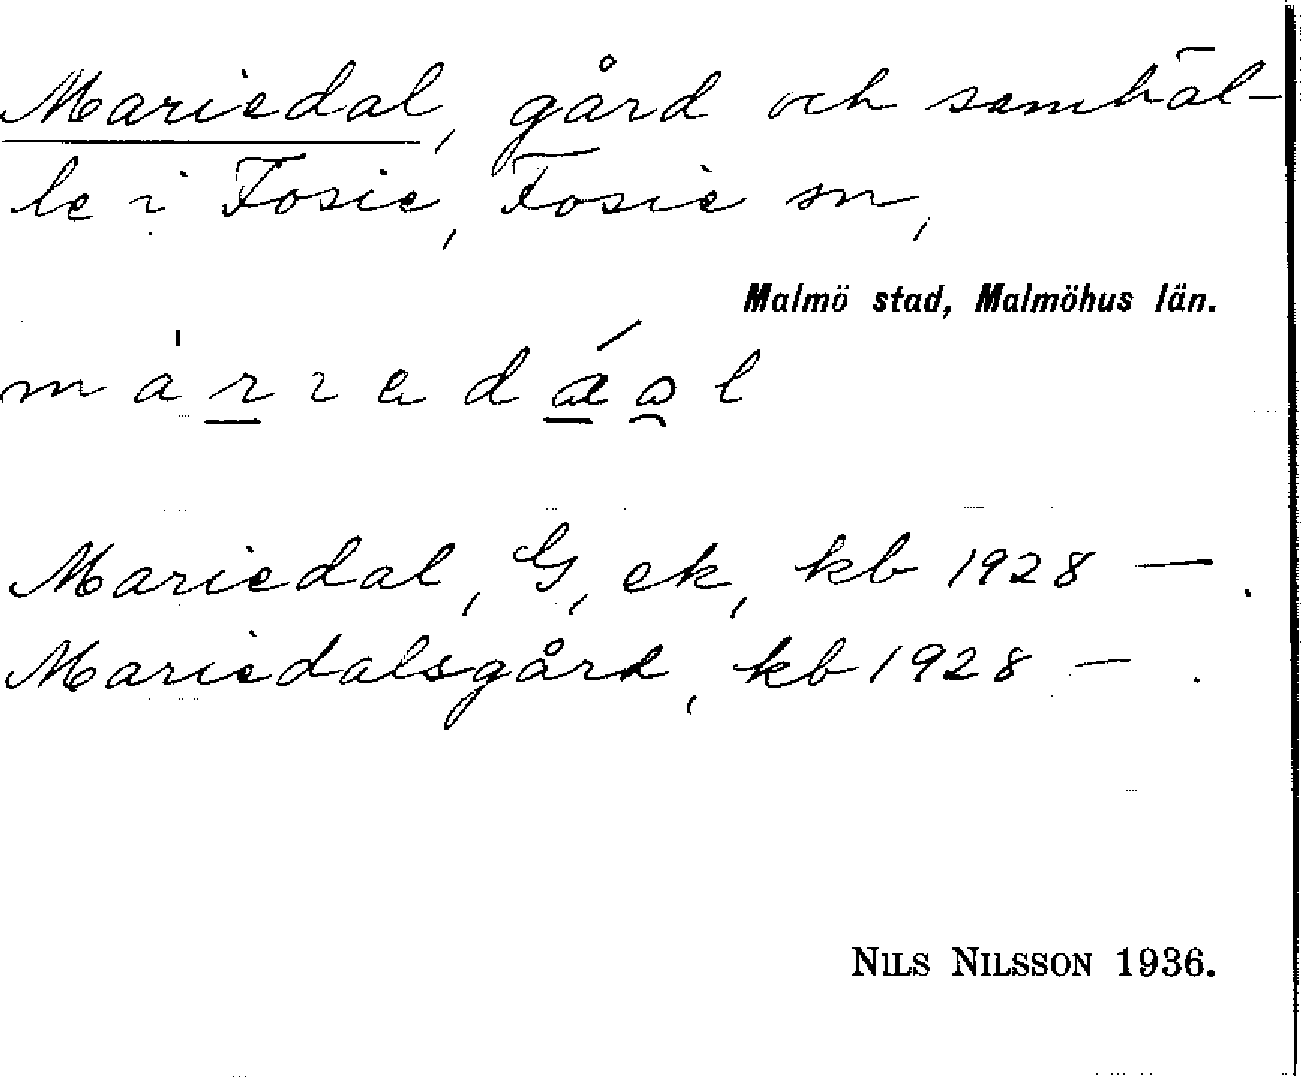 Mariedal, gård och samhäl-
le i Fosie, Fosie sn,
Malmö stad, Malmöhus län.
Mariedal, G, ek, kb 1928 — .
Mariedalsgård, kb 1928 — .
NILS NILSSON 1936.